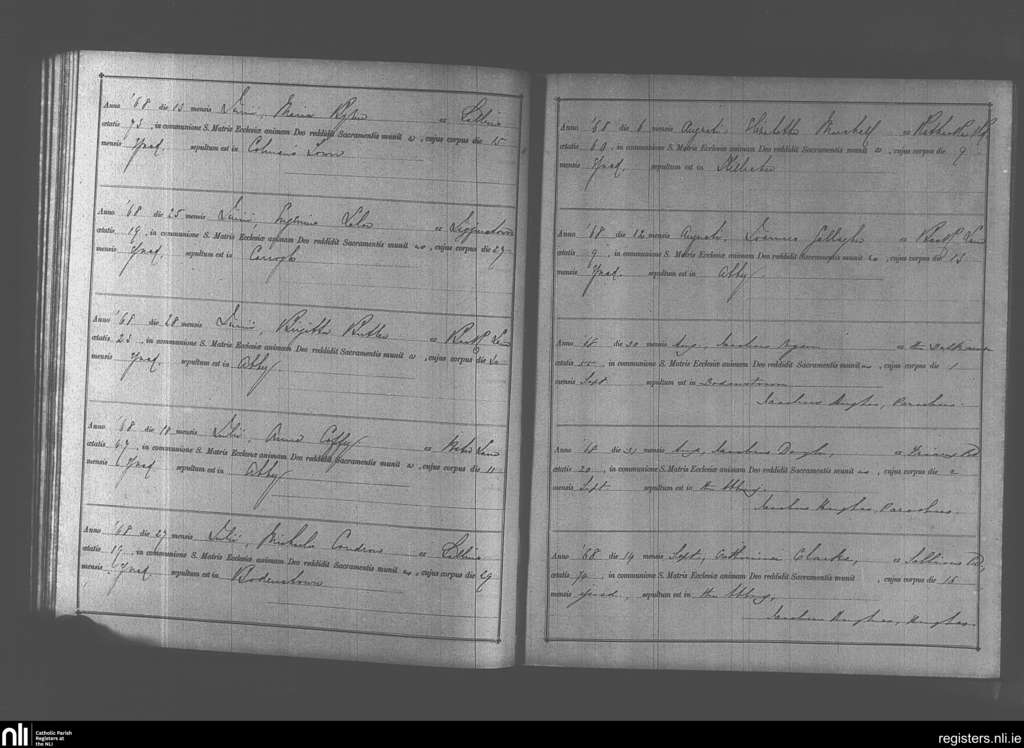 Anno '68 die 13 mensis Junii, Maria Ryder ex Sallins
ætatis 73, in communione S. Matris Ecclesiæ animam Deo reddidit Sacramentis munit a, cujus corpus die 15
mensis Ejusd. sepultum est in Colman's Town
Anno '68 die 25 mensis Junii, Eugenius ex
ætatis 19, in communione S. Matris Ecclesiæ animam Deo reddidit Sacramentis munit us, cujus corpus die 27
mensis Ejusd. sepultum est in Carogh
Anno '68 die 28 mensis Junii, Brigitta Butler ex
ætatis 23, in communione S. Matris Ecclesiæ animam Deo reddidit Sacramentis munit a, cujus corpus die 30
mensis Ejusd. sepultum est in Abby.
Anno '68 die 10 mensis Julii, Anna Coffy ex
ætatis 67, in communione S. Matris Ecclesiæ animam Deo reddidit Sacramentis munit a, cujus corpus die 11
mensis Ejusd sepultum est in Abby
Anno '68 die 27 mensis Julii, Michaelis Condron ex Sallins
ætatis 19, in communione S. Matris Ecclesiæ animam Deo reddidit Sacramentis munit us, cujus corpus die 29
mensis Ejusd sepultum est in Bodenstown
Anno '68 die 6 mensis August. Elizabetha ex
ætatis 60, in communione S. Matris Ecclesiæ animam Deo reddidit Sacramentis munit a, cujus corpus die 9
mensis Ejusd. sepultum est in
Anno '68 die 12 mensis August. Joannes ex
ætatis 9, in communione S. Matris Ecclesiæ animam Deo reddidit Sacramentis munit us, cujus corpus die 13
mensis Ejusd. sepultum est in Abby
Anno 68 die 30 mensis Aug. Jacobus ex
ætatis 55, in communione S. Matris Ecclesiæ animam Deo reddidit Sacramentis munit us, cujus corpus die 1
mensis Sept. sepultum est in Bodenstown
Jacobus Hughes, Parochus.
Anno '68 die 31 mensis Aug. Jacobus Doyle, ex
ætatis 20, in communione S. Matris Ecclesiæ animam Deo reddidit Sacramentis munit us, cujus corpus die 2
mensis Sept. sepultum est in the Abbey.
Jacobus Hughes, Parochus.
Anno '68 die 14 mensis Sept, Catharina Clarke, ex Sallins Rd,
ætatis 70, in communione S. Matris Ecclesiæ animam Deo reddidit Sacramentis munit , cujus corpus die 16
mensis Ejusd., sepultum est in the Abbey,
Jacobus Hughes,
nli Catholic Parish
Registers at
the NLI
registers.nli.ie